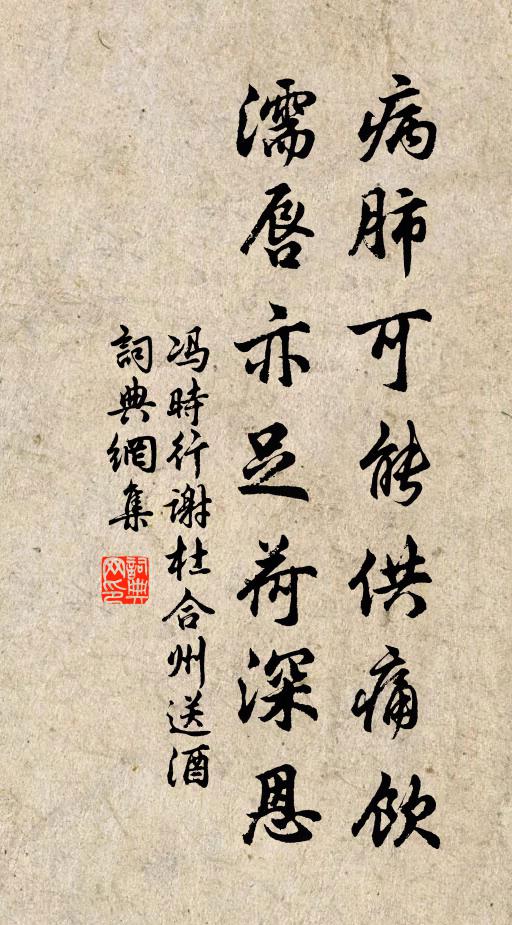 病肺可能供痛飲
濡唇亦足荷深恩
冯時行谢杜合州送酒
詞典網集
詞典网印